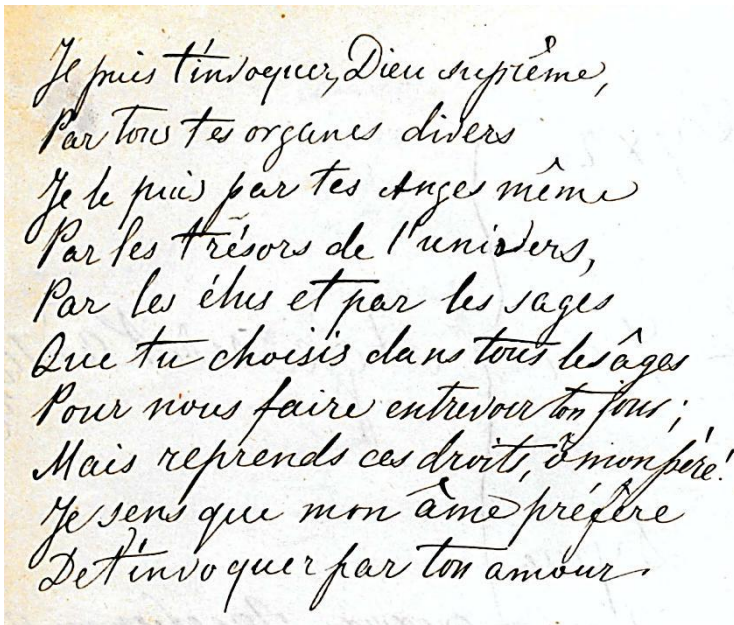 Je puis t'invoquer, Dieu suprême,
Par tous tes organes divers
Je le puis par tes Anges même
Par les trésors de l'univers,
Par les élus et par les sages
Que tu choisis dans tous les âges
Pour nous faire entrevoir ton jour ;
Mais reprends ces droits, ô mon père !
Je sens que mon âme préfère
De t'invoquer par ton amour.